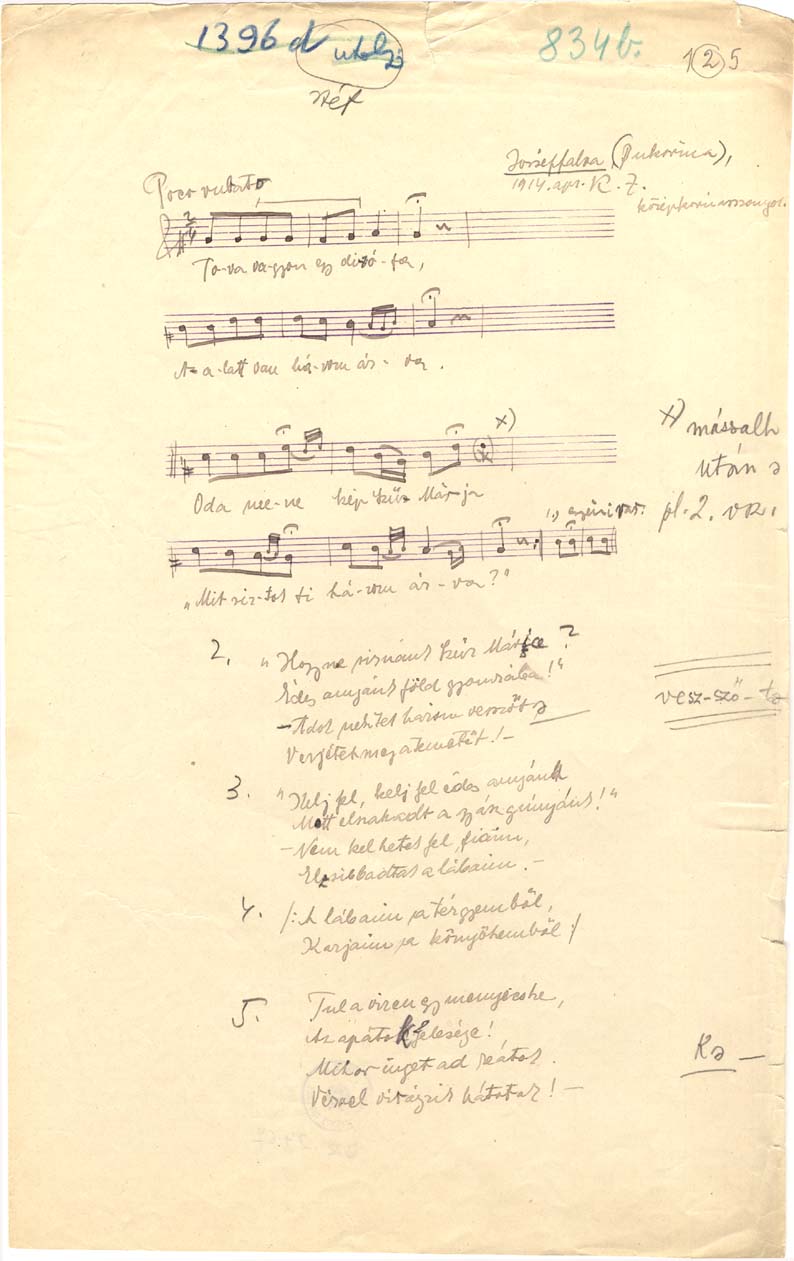 1396 d
utolsó
834 b.
1 2 5
Józseffalva (Bukovina),
1914. apr. K. Z.
középkorú asszonyok.
Poco rubato
To-va va-gyon egy dió-fa,
A-a-latt van há-rom ár-va.
x)
Oda mene kép Szűz Már-ja
x) mássalh
után
pl. 2. vsz.
"Mit sir-tok ti há-rom ár-va?"
2. "Hogyne sirnánk Szűz Márja?
Édes anyánk föld gyomrába!"
-Adok nektek három vesszőt
Verjétek meg a temetőt!-
vesz-sző-t
3. "Kelj fel, kelj fel édes anyánk
Mett elszakadt a gyász gúnyánk!"
-Nem kelhetek fel, fiaim,
Elzsibbadtak a lábaim.-
4. /:A lábaim a térgyemből,
Karjaim a könyökemből:/
5. Tul a vizen egy menyecske,
Az apátok felesége!
Mikor inget ad reátok
Vérvel virágzik hátatok!-